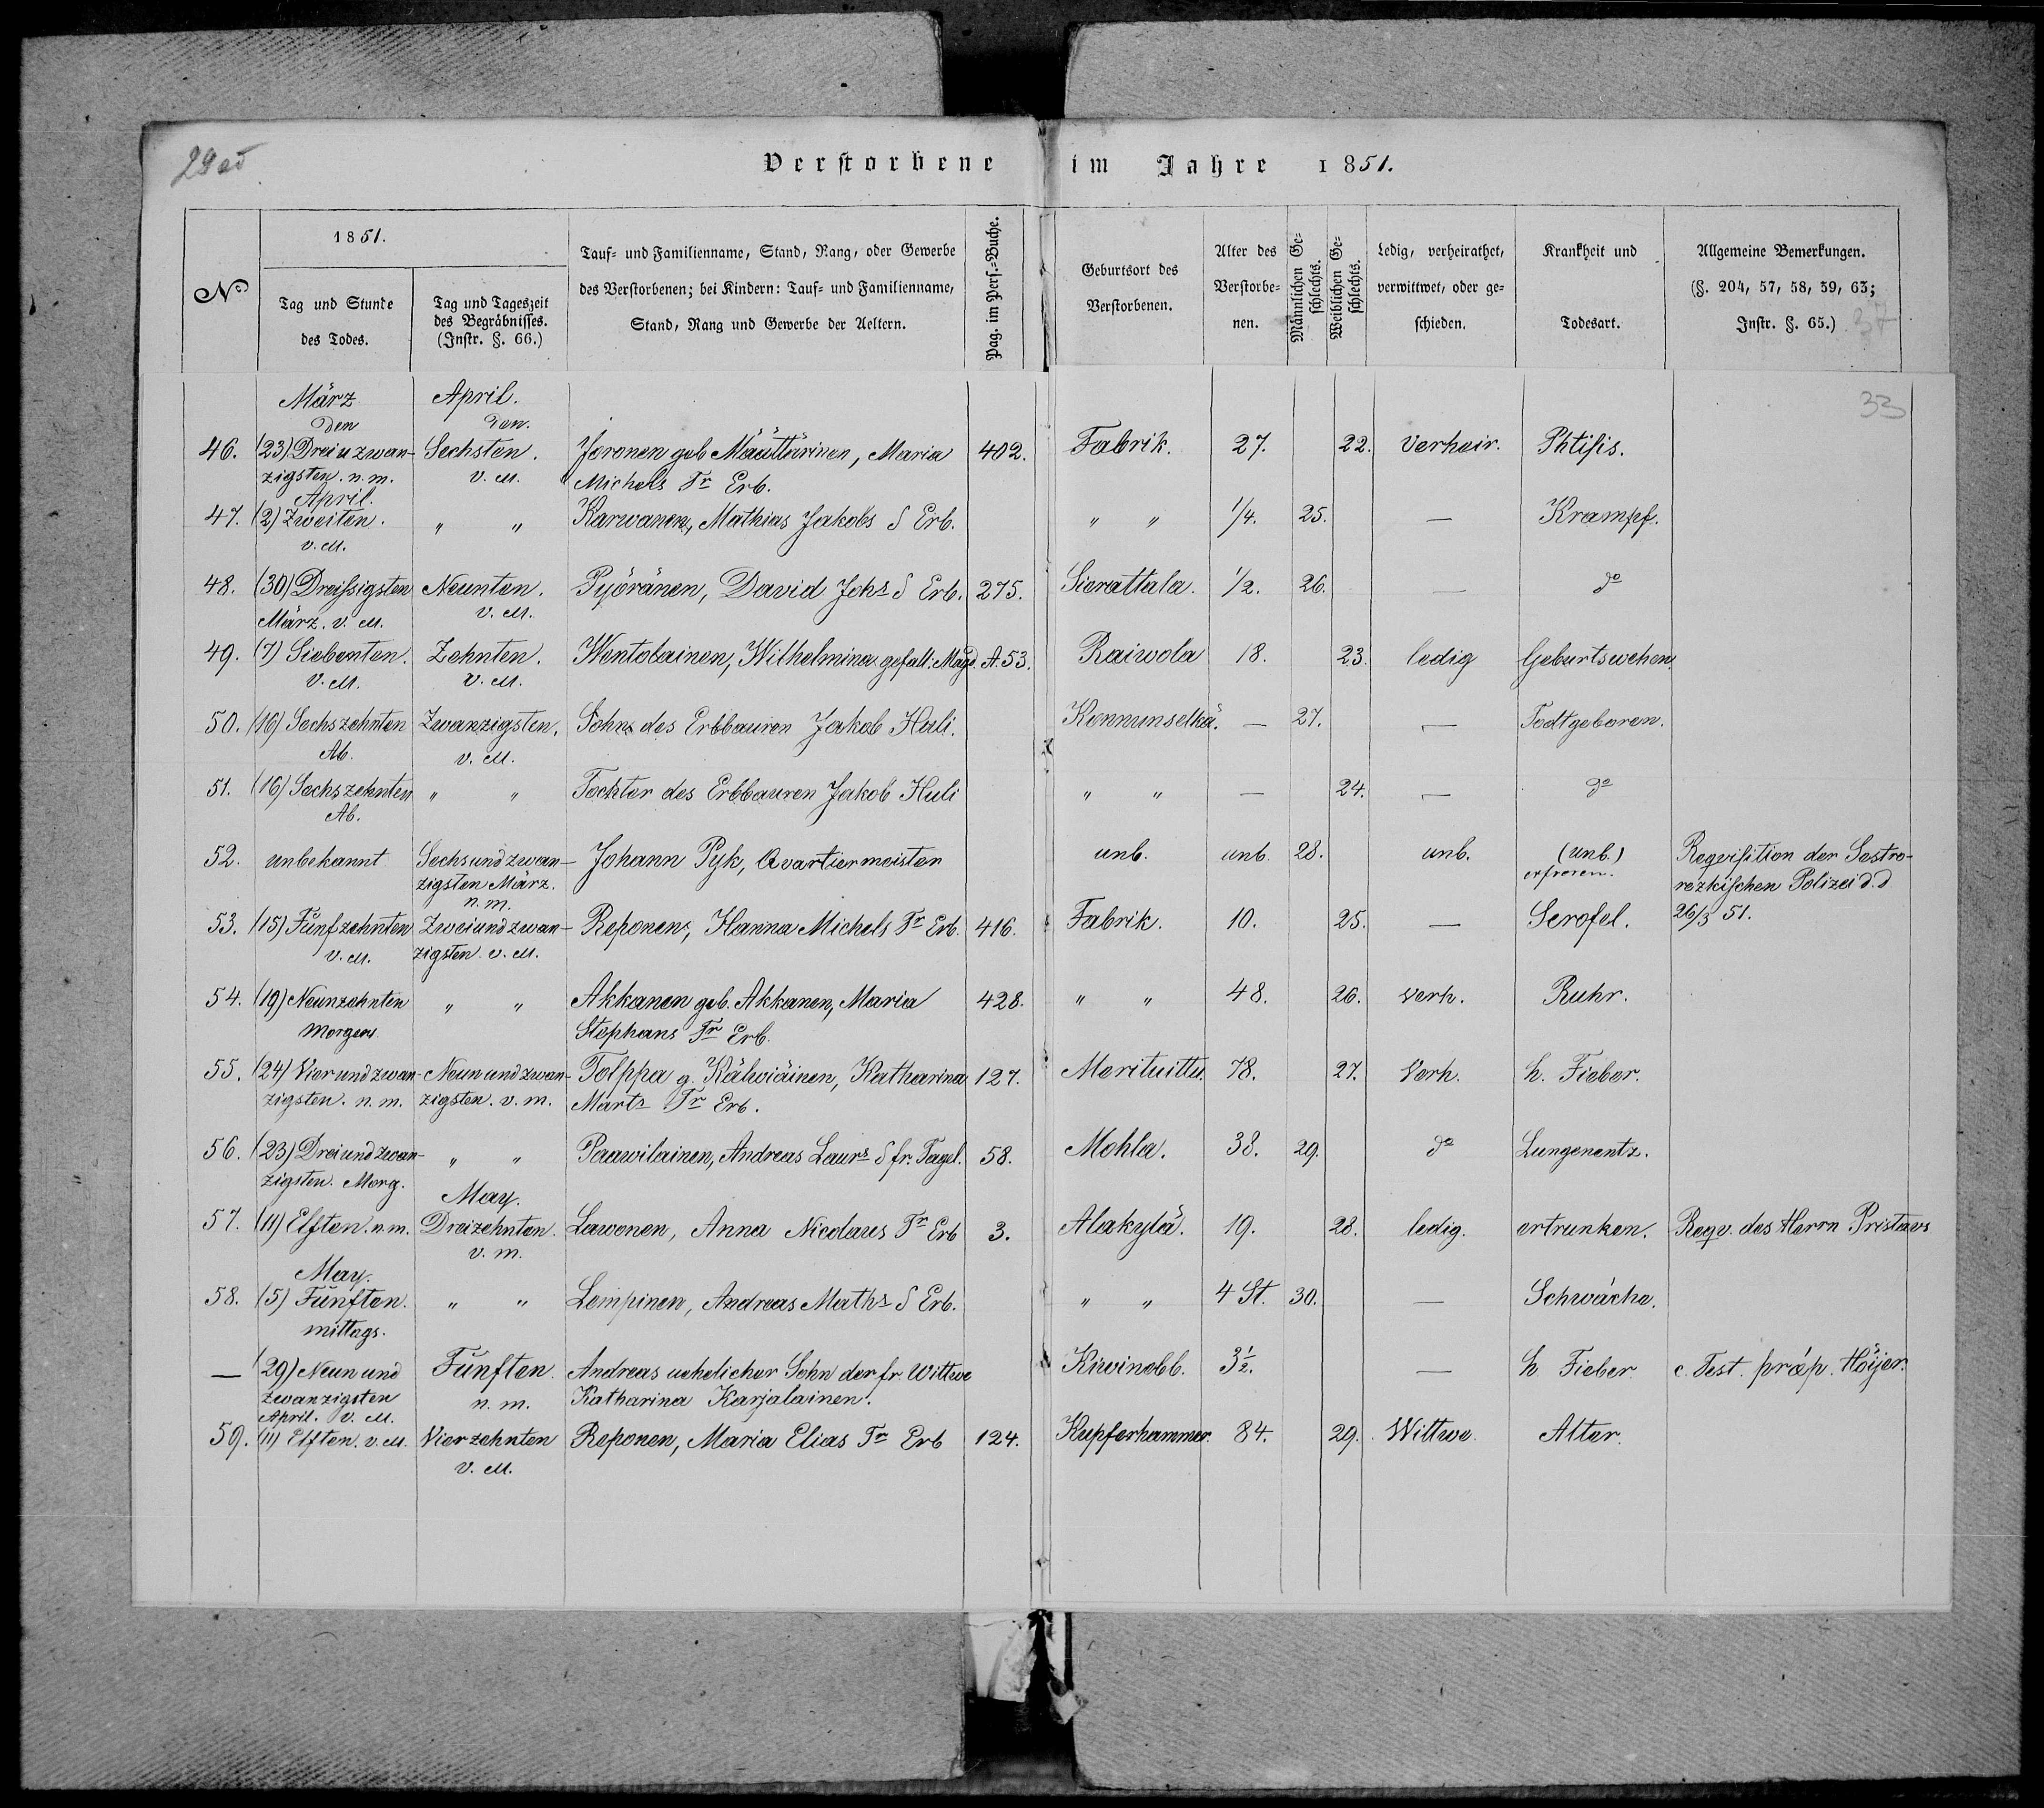 Verstorbene im Jahre 1851.
33
No
1851.
Tag und Stunde des Todes.
Tag und Tageszeit des Begräbnisses. (Instr. §. 66.)
Tauf- und Familienname, Stand, Rang, oder Gewerbe des Verstorbenen; bei Kindern: Tauf- und Familienname, Stand, Rang und Gewerbe der Aeltern.
Pag. im Pers.-Buche.
Geburtsort des Verstorbenen.
Alter des Verstorbenen.
Männlichen Geschlechts.
Weiblichen Geschlechts.
Ledig, verheirathet, verwittwet, oder geschieden.
Krankheit und Todesart.
Allgemeine Bemerkungen. (§. 204, 57, 58, 59, 63; Instr. §. 65.)
März April.
den den.
46. (23) Drei u zwan- Sechsten. Joronen geb Mäuttärinen, Maria 402. Fabrik. 27. 22. Verheir. Phtisis.
zigsten. n. m. v. M. Michels Tr Erb.
April.
47. (2) Zweiten. " " Karwanen, Mathias Jakobs S Erb. " " 1/4. 25. — Krampf.
v. M.
48. (30) Dreissigsten Neunten. Pyöränen, David Johs S Erb. 275. Sierattala. 1/2. 26. — do
März. v. M. v. M.
49. (7) Siebenten. Zehnten. Wentolainen, Wilhelmina gefall. Magd A. 53. Raiwola 18. 23. ledig Geburtswehen.
V. M. V. M.
50. (16) Sechszehnten Zwanzigsten. Sohn des Erbbauren Jakob Huli. Konnunselkä. — 27. — Todtgeboren.
Ab. v. M.
51. (16) Sechszehnten " " Tochter des Erbbauren Jakob Huli " " — 24. — do
Ab.
52. unbekannt Sechsundzwan- Johann Pyk, Qvartiermeister unb. unb. 28. unb. (unb.) Reqvisition der Sestro-
zigsten März. erfroren. rezkischen Polizei d. d
n. m. 26/3 51.
53. (15) Fünfzehnten Zweiundzwan- Reponen, Hanna Michels Tr Erb. 416. Fabrik. 10. 25. — Scrofel.
v. M. zigsten v. M.
54. (19) Neunzehnten " " Akkanen geb. Akkanen, Maria 428. " " 48. 26. verh. Ruhr.
Morgens Stephans Tr Erb.
55. (24) Vierundzwan- Neunundzwan- Tolppa g. Kälwiäinen, Katharina 127. Merituittu. 78. 27. Verh. h. Fieber.
zigsten. n. m. zigsten. v. m. Marts Tr Erb.
56. (23) Dreiundzwan- " " Paawilainen, Andreas Laurs S fr. Tagel. 58. Mohla. 38. 29. do Lungenentz.
zigsten. Morg. May.
57. (11) Elften. n. m. Dreizehnten. Lawonen, Anna Nicolaus Tr Erb 3. Alakylä. 19. 28. ledig. ertrunken. Reqv. des Herrn Pristaws
v. m.
May.
58. (5) Fünften. " " Lempinen, Andreas Maths S Erb. " " 4 St. 30. — Schwäche.
mittags.
— (29) Neun und Fünften Andreas uehelicher Sohn der fr. Wittwe Kiwinebb. 3 1/2. — h. Fieber. c. Test. präp. Höijer.
zwanzigsten n. m. Katharina Karjalainen.
April. v. M.
59. (11) Elften. v. M. Vierzehnten Reponen, Maria Elias Tr Erb 124. Kupferhammer. 84. 29. Wittwe. Alter.
v. M.